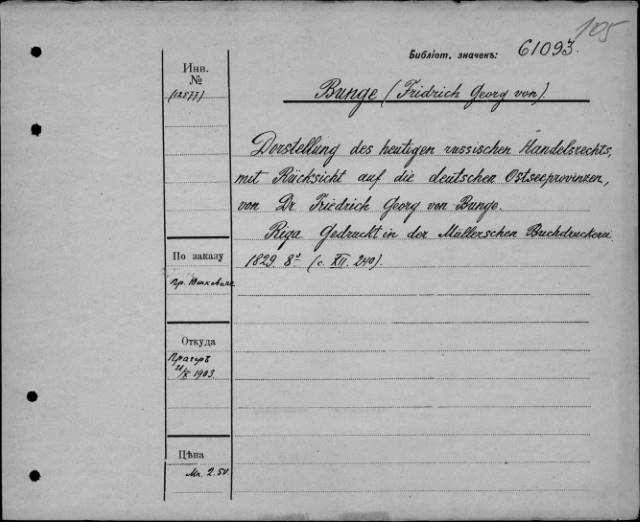 105
Библіот. значекъ: 61093.
Инв.
№
(12577)
Bunge (Fridrich Georg von)
Darstellung des heutigen russischen Handelsrechts,
mit Rücksicht auf die deutschen Ostseeprovinzen,
von Dr Friedrich Georg von Bunge.
Riga Gedruckt in der Müllerschen Buchdruckerei
1829. 8º (с. XII. 240).
По заказу
Пр.
Откуда
Прагеръ
21/X 1903
Цѣна
Mr. 2.50.